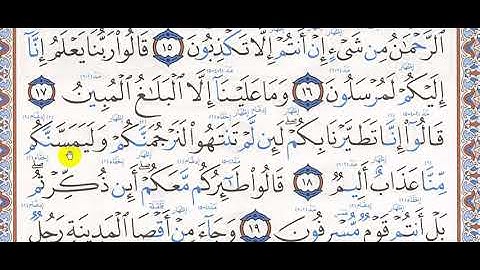 الرَّحْمَٰنُ مِن شَيْءٍ إِنْ أَنتُمْ إِلَّا تَكْذِبُونَ ١٥ قَالُوا رَبُّنَا يَعْلَمُ إِنَّا
إِلَيْكُمْ لَمُرْسَلُونَ ١٦ وَمَا عَلَيْنَا إِلَّا الْبَلَاغُ الْمُبِينُ ١٧
قَالُوا إِنَّا تَطَيَّرْنَا بِكُمْ لَئِن لَّمْ تَنتَهُوا لَنَرْجُمَنَّكُمْ وَلَيَمَسَّنَّكُم
مِّنَّا عَذَابٌ أَلِيمٌ ١٨ قَالُوا طَائِرُكُم مَّعَكُمْ أَئِن ذُكِّرْتُم
بَلْ أَنتُمْ قَوْمٌ مُّسْرِفُونَ ١٩ وَجَاءَ مِنْ أَقْصَا الْمَدِينَةِ رَجُلٌ